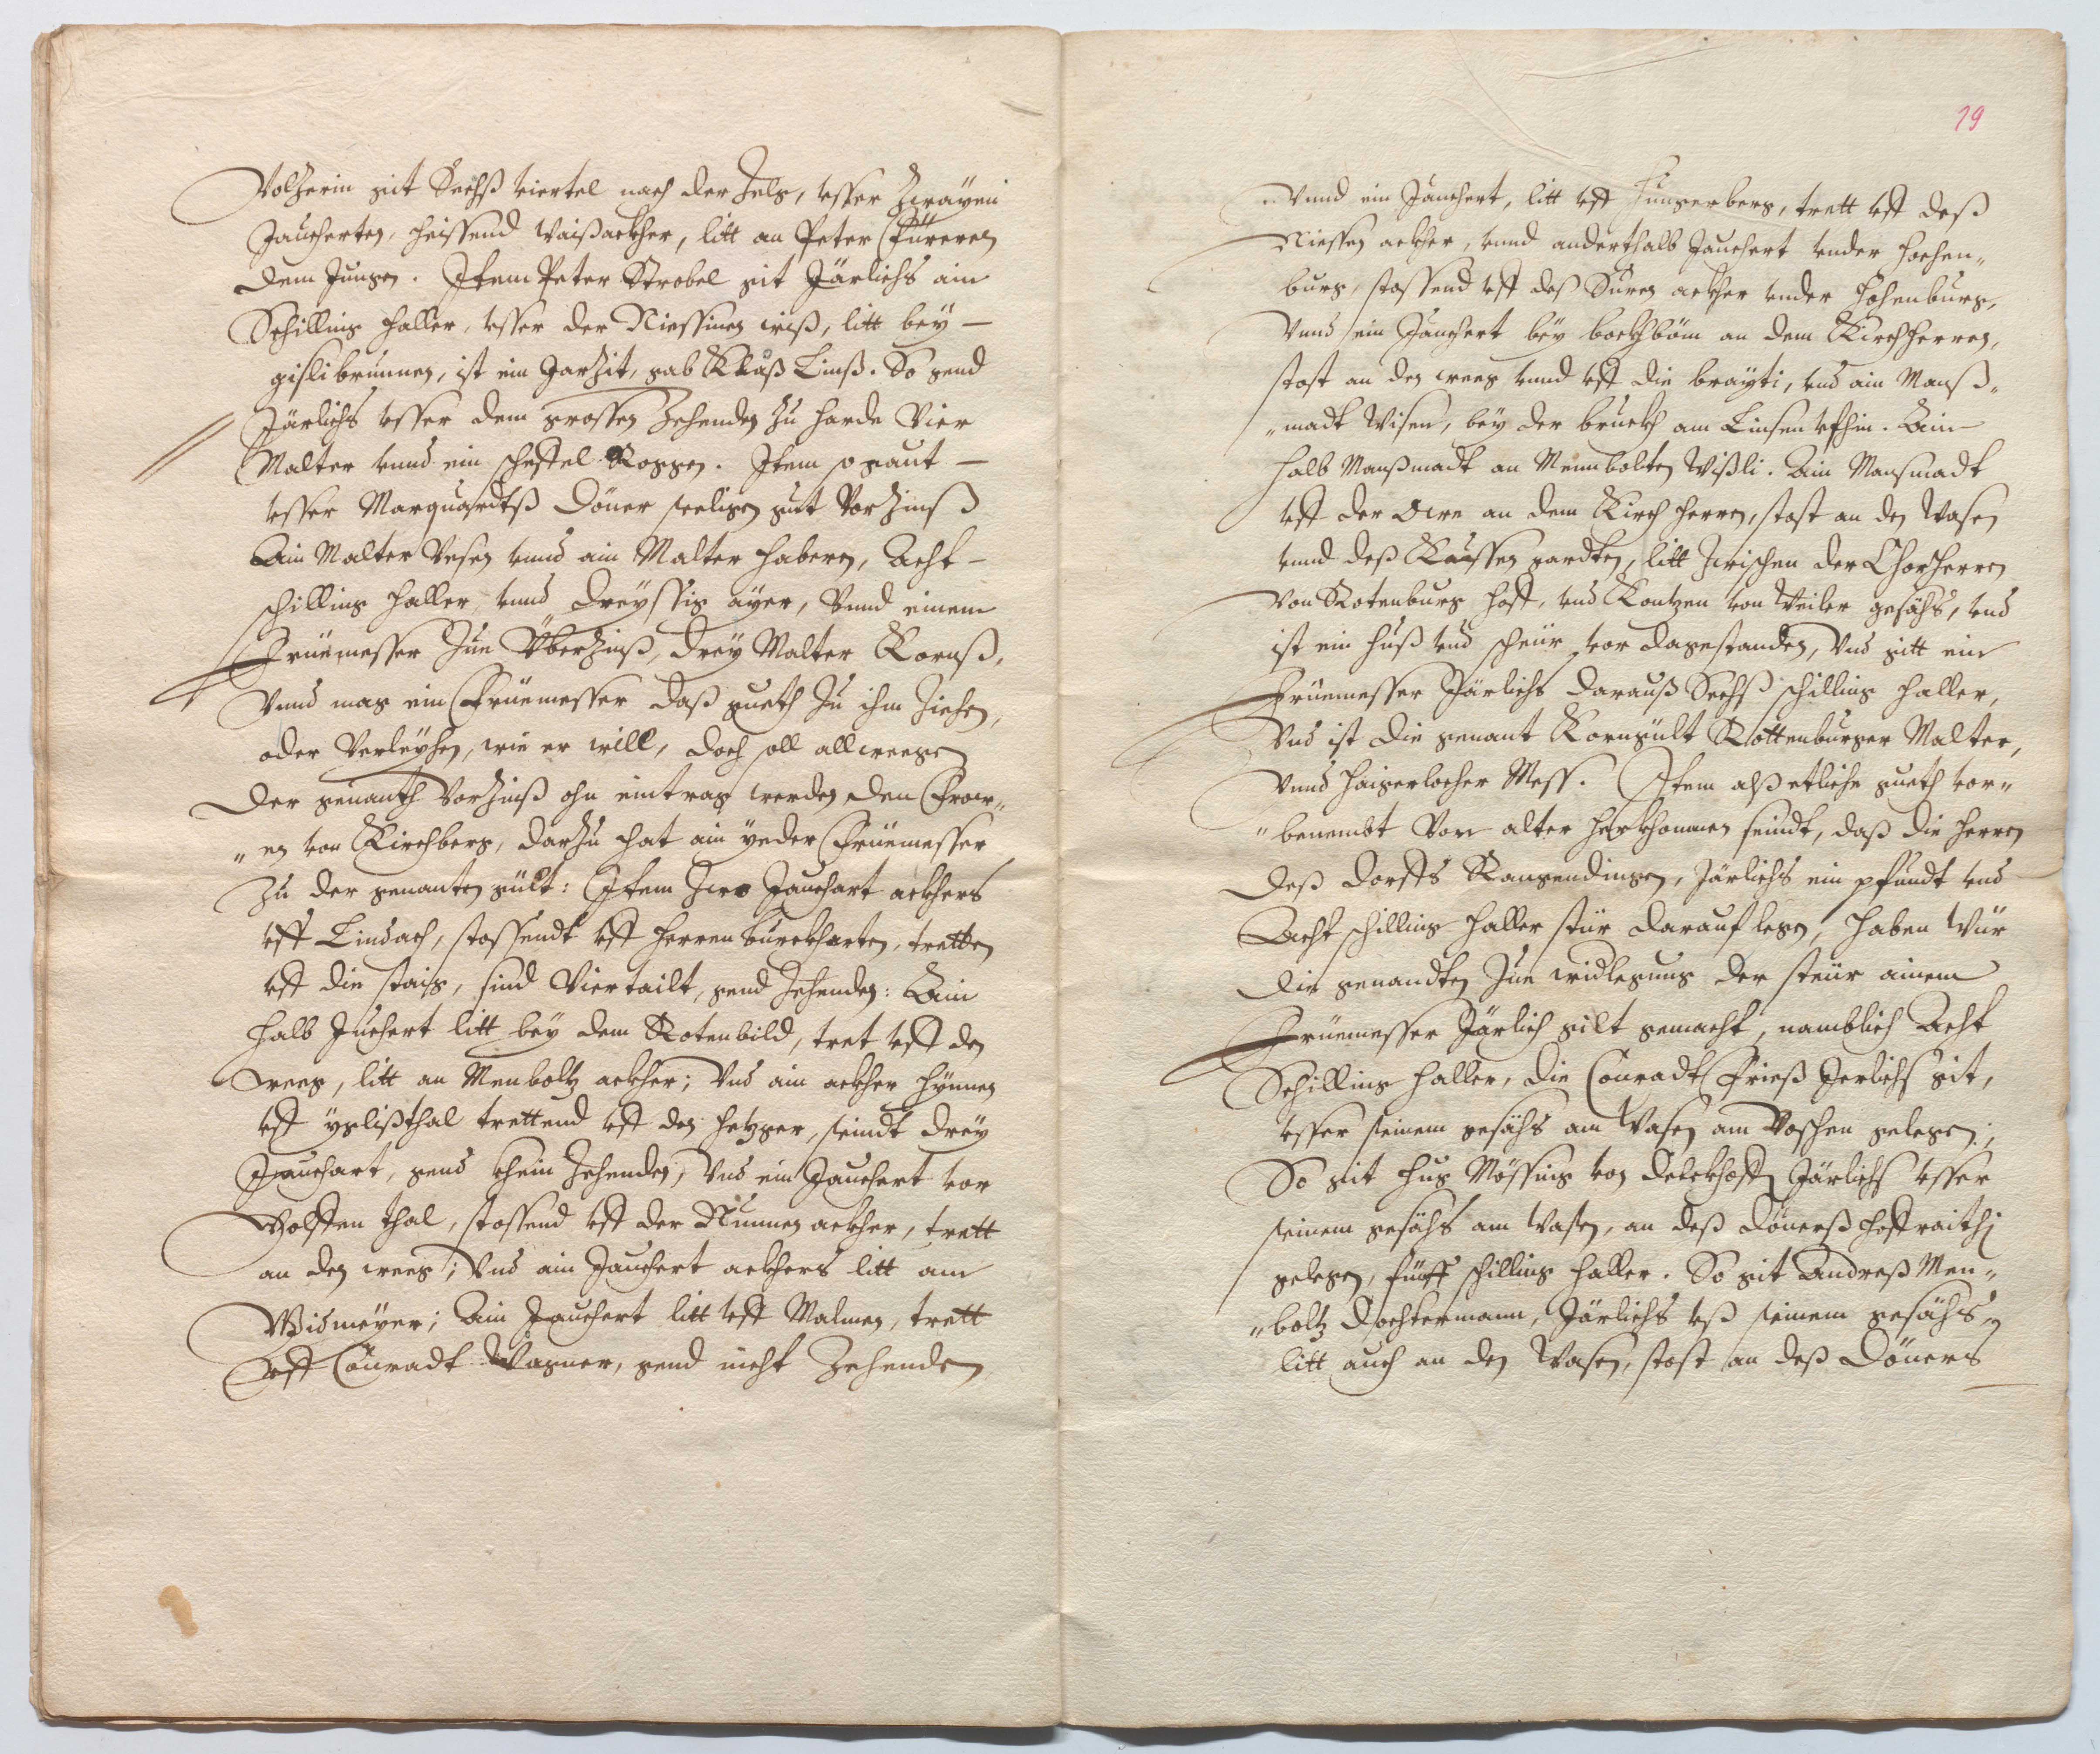 Volzerin git Sechß viertel nach der Zelg, vsser Zwayen
Jaucherten, heissend Waißackher, litt an Peter Fürerer
dem Jungen. Item Peter Strobel git Järlichs ain
Schilling haller, vsser der Niessinen wiß, litt bey
gislibrunnen, ist ein Jarzit, gab Klauß Linß. So gend
Järlichs vsser dem grossen Zehenden zu harde Vier
Malter vnnd ein scheffel Roggen. Item so gaut
vsser Marquardtß Döner seeligen guet Vorzinß
Ain Malter Vesen vnnd ain Malter haberen, Acht
schilling haller, vnnd dreyssig ayer, Vnnd einem
Früemesser Zue Überzinß, drey Malter Kornß,
Vnnd mag ein Früemesser daß gueth zu ihm ziehen,
oder Verleyhen, wie er will, doch soll allweegen
der genanth Vorzinß ohn eintrag werden den Frow„
„en von Kirchberg, darzu hat ain yeder Früemesser
zu der genanten gült: Item Zwo Jauchart ackhers
vff Lindach, stossendt vff herren burckharten, tretten
vff die staig, sind Viertailt, gend Zehenden: Ain
halb Juchert litt bey dem Rotenbild, tret vff den
weeg, litt an Menboltz ackher; Vnd ain ackher hynnen
vff yglißthal trettend vff den hetzger, seindt drey
Jauchart, gend khein Zehenden, Vnd ein Jauchert vor
Wolffen thal, stossend vff der Nunnen ackher, trett
an den weeg; Vnd ain Jauchert ackhers litt am
Widmeyer; Ain Jauchert litt vff Malmen, trett
vff Conradt Wagner, gend nicht Zehenden
19
Vnnd ein Jauchert, litt vff Hungerberg, trett vff deß
Niessen ackher, vnnd anderthalb Jauchert vnder hochen„
burg, stossend vff deß Süren ackher vnder Hohenburg,
Vnnd ein Jauchert bey bockhböm an dem Kirchherren,
stost an den weeg vnnd vff die brayti, vnd ain Manß„
„madt Wisen, bey der bruckh am Linsen vffhin. Ain
halb Manßmadt an Mennbolten Wißli. Ain Mansmadt
vff der Owe an dem Kirch herren, stost an den Wasen
vnnd deß Kaussen gardten, litt Zwischen der Chorherren
von Rotenburg hoff, vnd Kontzen von Weiler gesähs, vnd
ist ein huß vnd scheür vor dagestanden, Vnd gitt ein
Früemesser Järlichs darauß Sechß schilling haller,
Vnd ist die genant Korngült Rottenburger Malter,
Vnnd haigerlocher Mess. Item alß etliche gueth vor„
„benembt Von alter herkhommen seindt, daß die herren
deß dorffs Rangendingen, Järlichs ein pfundt vnd
Acht schilling haller stür darauf legen, haben Wür
die genandten Zue widlegung der steür ainem
Früemesser Järlich gilt gemacht, namblich Acht
Schilling haller, die Conradt Frieß Jerlichs git,
vsser seinem gesähs am Wasen am Boschen gelegen;
So git Hug Mössing von Delckhoffen Järlichs vsser
seinem gesähs am Wasen, an deß Dönerß hoffraithi
gelegen, fünff schilling haller. So git Andreß Men„
„boltz Dochtermann, Järlichs vß seinem gesähs,
litt auch an den Wasen, stost an deß Döners